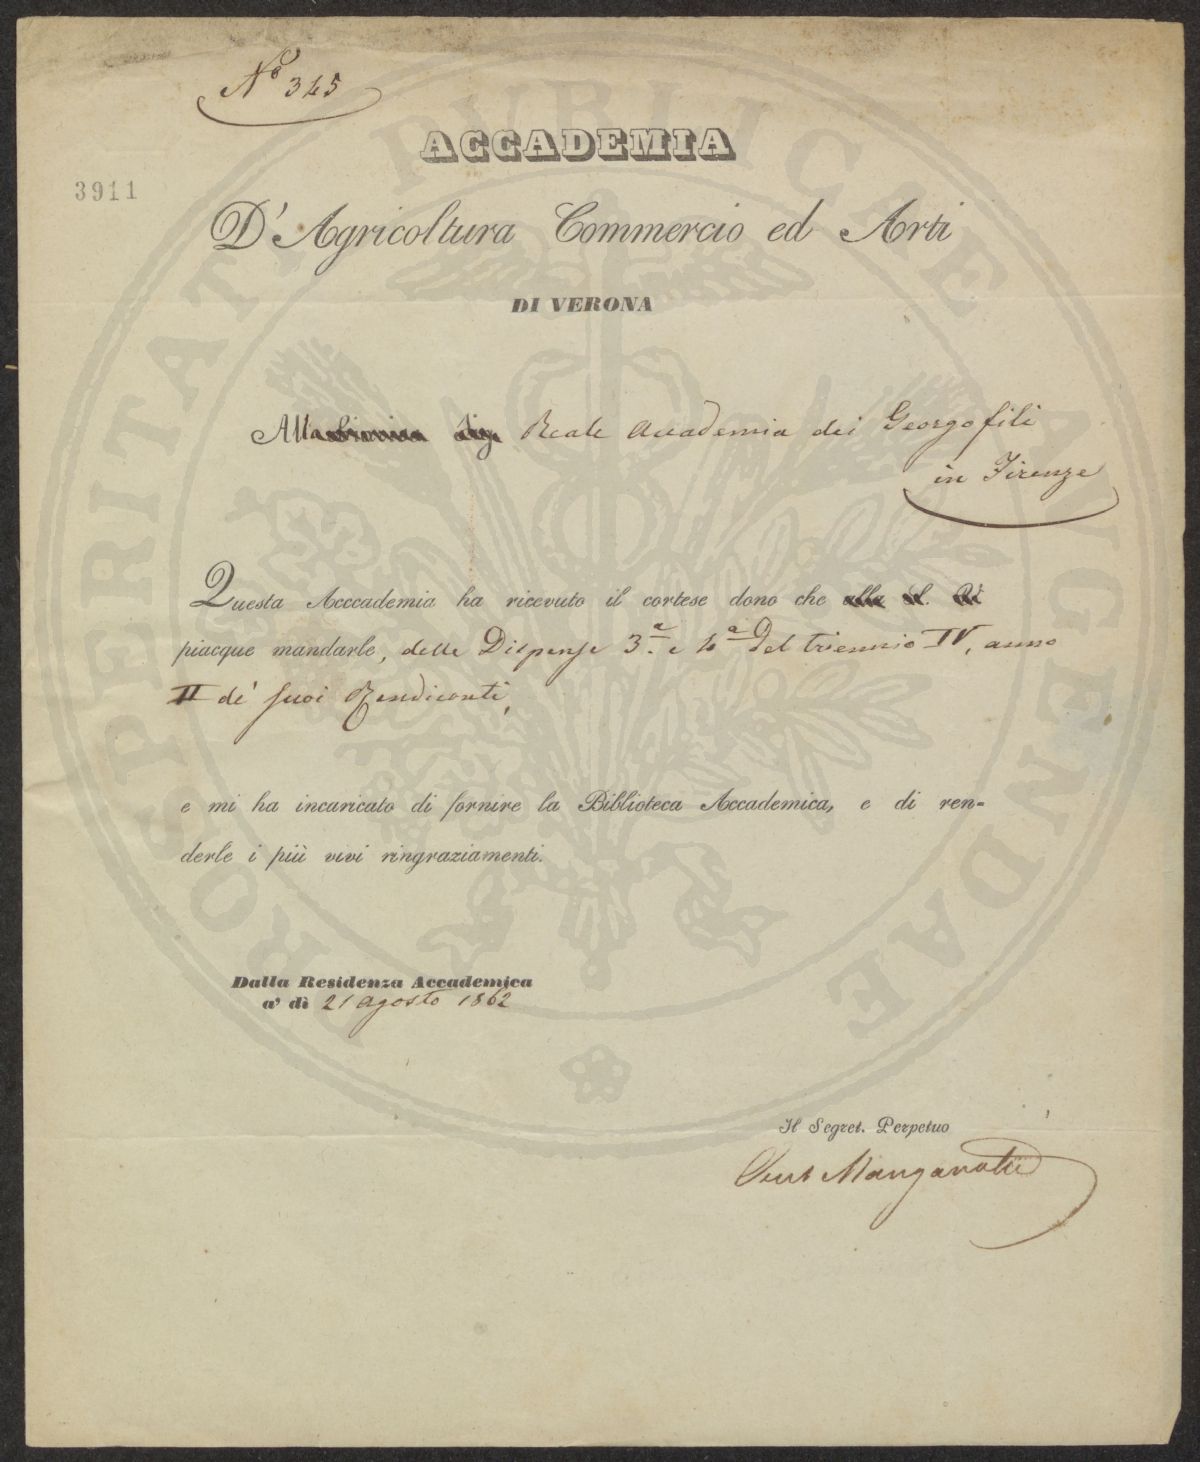 N.º 345
ACCADEMIA
3911
D'Agricoltura Commercio ed Arti
DI VERONA
Alla Reale Accademia dei Georgofili
in Firenze
Questa Acccademia ha ricevuto il cortese dono che alla S. V.
piacque mandarle, delle Dispense 3.ª e 4.ª del triennio IV, anno
II de' suoi Rendiconti,
e mi ha incaricato di fornire la Biblioteca Accademica, e di ren-
derle i più vivi ringraziamenti.
Dalla Residenza Accademica
a' dì 21 agosto 1862
Il Segret. Perpetuo
Manganotti
PROSPERITATI PUBLICAE AUGENDAE